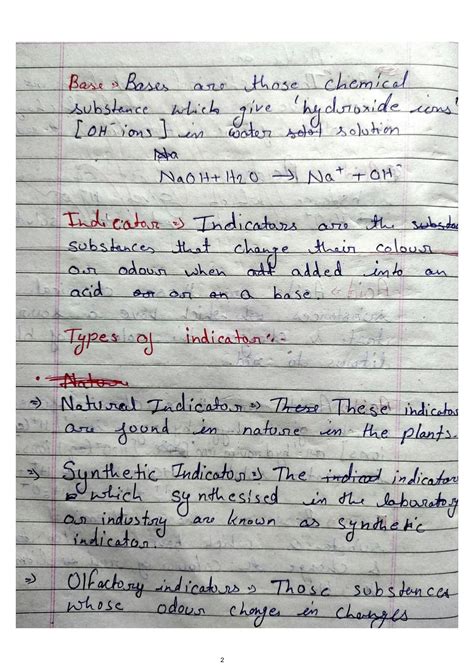 Base ⇒ Bases are those chemical
substance which give 'hydroxide ions'
[OH⁻ ions] in water solution
Na
NaOH + H2O → Na⁺ + OH⁻
Indicator ⇒ Indicators are the substances
substances that change their colour
or odour when added into an
acid or or an a base.
Types of indicator:-
Natur
⇒ Natural Indicator ⇒ There These indicator
are found in nature in the plants.
⇒ Synthetic Indicator ⇒ The indicat indicator
which synthesised in the laboratory
or industry are known as synthetic
indicator.
⇒ Olfactory indicators ⇒ Those substances
whose odour changes in changes
2